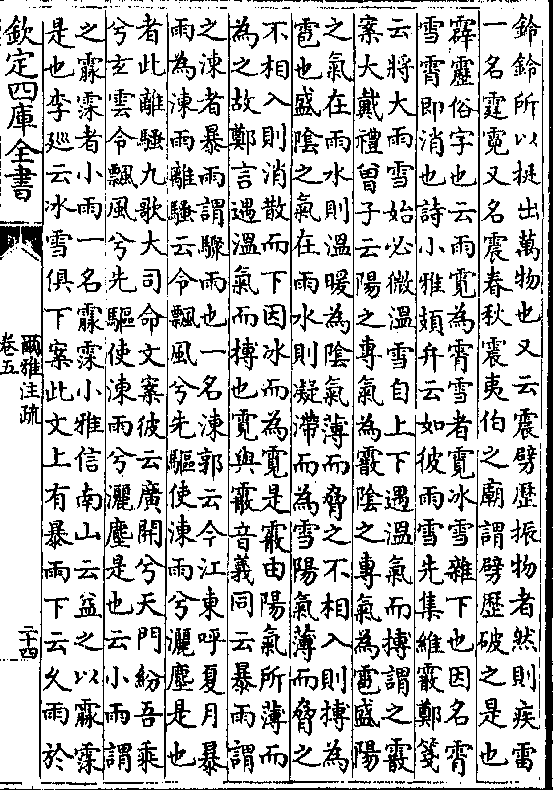 鈴鈴所以挺出萬物也又云震劈歷振物者然則疾雷
一名霆霓又名震春秋震夷伯之廟謂劈歷破之是也
霹靂俗字也云雨霓為霄雪者霓冰雪雜下也因名霄
雪霄即消也詩小雅頍弁云如彼雨雪先集維霰鄭箋
云將大雨雪始必微溫雪自上下遇溫氣而摶謂之霰
案大戴禮曾子云陽之專氣為霰陰之專氣為雹盛陽
之氣在雨水則溫暖為陰氣薄而脅之不相入則摶為
雹也盛陰之氣在雨水則凝滯而為雪陽氣薄而脅之
不相入則消散而下因冰而為霓是霰由陽氣所薄而
為之故鄭言遇溫氣而摶也霓與霰音義同云暴雨謂
之涷者暴雨謂驟雨也一名涷郭云今江東呼夏月暴
雨為涷雨離騷云令飄風兮先驅使涷雨兮灑塵是也
者此離騷九歌大司命文案彼云廣開兮天門紛吾乘
兮玄雲令飄風兮先驅使涷雨兮灑塵是也云小雨謂
之霡霂者小雨一名霡霂小雅信南山云益之以霡霂
是也李廵云冰雪俱下案此文上有暴雨下云久雨於
欽定四庫全書
爾雅注疏
卷五
二十四